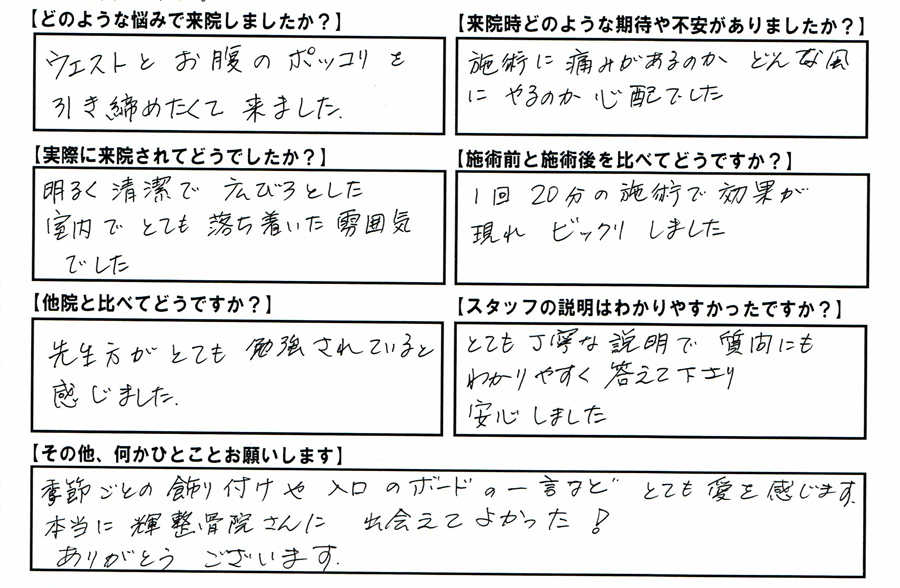 【どのような悩みで来院しましたか？】
ウエストと お腹の ポッコリ を
引き締めたくて 来ました.
【来院時どのような期待や不安がありましたか？】
施術に 痛みがあるのか どんな風
に やるのか 心配でした
【実際に来院されてどうでしたか？】
明るく 清潔で 広びろとした
室内で とても 落ち着いた 雰囲気
でした
【施術前と施術後を比べてどうですか？】
1回 20分の 施術で 効果が
現れ ビックリ しました
【他院と比べてどうですか？】
先生方が とても 勉強されていると
感じました.
【スタッフの説明はわかりやすかったですか？】
とても 丁寧な 説明で 質問にも
わかりやすく 答えて下さり
安心しました
【その他、何かひとことお願いします】
季節ごとの 飾り付けや 入口のボードの一言など とても 愛を感じます.
本当に 輝整骨院さんに 出会えてよかった！
ありがとう ございます.